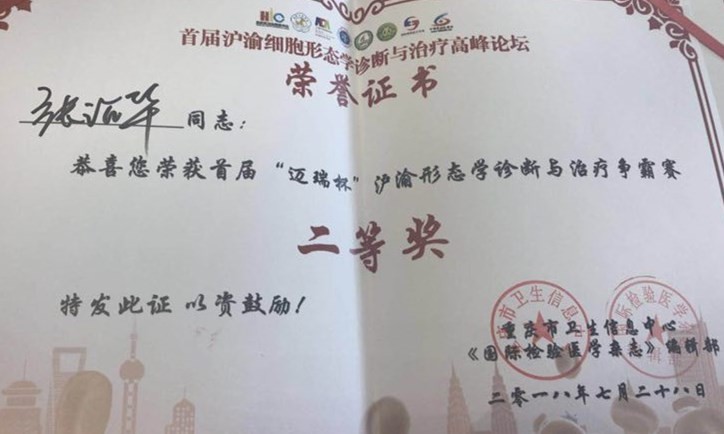 首届沪渝细胞形态学诊断与治疗高峰论坛
荣誉证书
同志：
恭喜您荣获首届“迈瑞杯”沪渝形态学诊断与治疗争霸赛
二等奖
特发此证 以资鼓励！
重庆市卫生信息中心
《国际检验医学杂志》编辑部
二零一八年七月二十八日